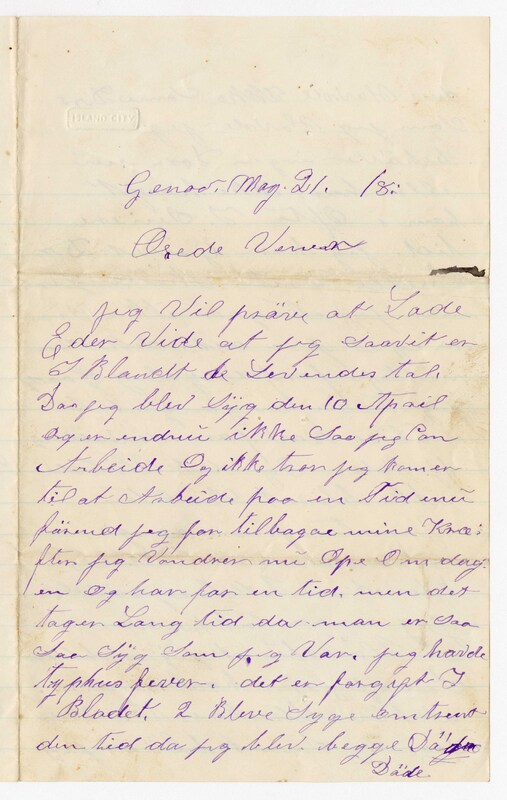 ISLAND CITY
Genoa. May. 21. 18:
Ærede Venner
jeg Vil präve at Lade
Eder Vide at jeg saavit er
I Blandt de Levendes tal.
Da jeg blev Syg den 10 April
og er endnu ikke Saa jeg Can
Arbeide Og ikke tror jeg kom er
til at Arbeide paa en Tid enu
färend jeg far tilbagae mine Kræ:
fter jeg Vandrer nu Ope Om dag:
en og har far en tid. men det
tager Lang tid da man er saa
saa Syg Som jeg Var. jeg havde
typhus fever. det er forgift I
Blodet. 2 Bleve Syge omtrent
den tid da jeg blev. begge
Däde.